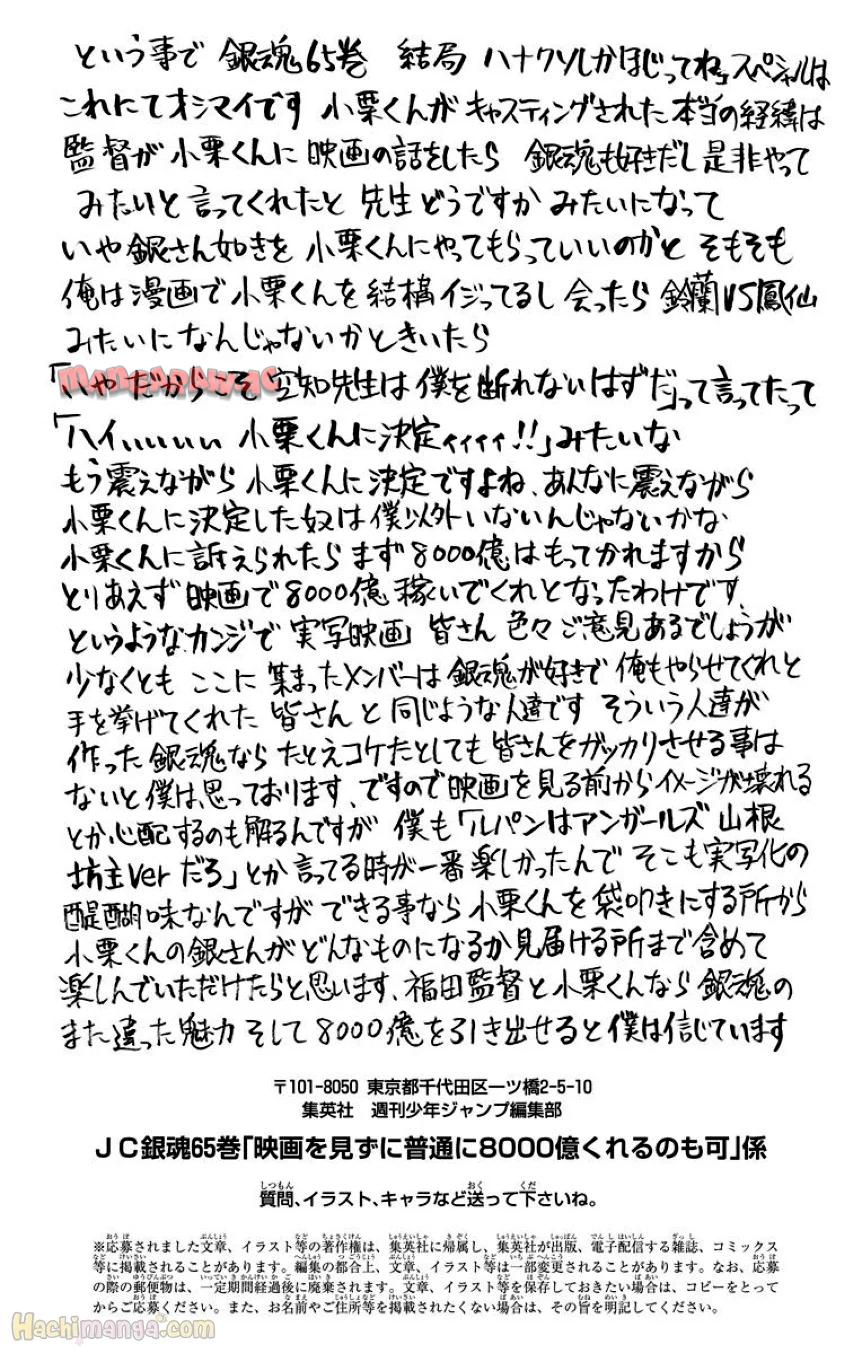 という事で 銀魂65巻 結局 ハナクソしかほじってねースペシャルは
これにてオシマイです 小栗くんがキャスティングされた本当の経緯は
監督が小栗くんに映画の話をしたら 銀魂も好きだし是非やって
みたいと言ってくれたと 先生どうですか みたいになって
いや銀さん如きを 小栗くんにやってもらっていいのかと そもそも
俺は漫画で小栗くんを結構イジってるし 会ったら 鈴蘭VS鳳仙
みたいになんじゃないかときいたら
「いやだからこそ 空知先生は僕を断れないはずだ」って言ってたって
「ハイぃぃぃぃぃ 小栗くんに決定ィィィィ!!」みたいな
もう震えながら 小栗くんに決定ですよね、あんなに震えながら
小栗くんに決定した奴は僕以外いないんじゃないかな
小栗くんに訴えられたら まず8000億はもってかれますから
とりあえず映画で8000億稼いでくれとなったわけです、
というようなカンジで 実写映画 皆さん 色々ご意見あるでしょうが
少なくとも ここに集まったメンバーは銀魂が好きで 俺もやらせてくれと
手を挙げてくれた 皆さんと同じような人達です そういう人達が
作った銀魂なら たとえコケたとしても皆さんをガッカリさせる事は
ないと僕は思っております、ですので映画を見る前からイメージが壊れる
とか心配するのも解るんですが 僕も「ルパンはアンガールズ山根
坊主verだろ」とか言ってる時が一番楽しかったんで そこも実写化の
醍醐味なんですが できる事なら小栗くんを袋叩きにする所から
小栗くんの銀さんがどんなものになるか見届ける所まで含めて
楽しんでいただけたらと思います、福田監督と小栗くんなら銀魂の
また違った魅力 そして8000億を引き出せると僕は信じています
mangapuwac
〒101-8050 東京都千代田区一ツ橋2-5-10
集英社 週刊少年ジャンプ編集部
JC銀魂65巻「映画を見ずに普通に8000億くれるのも可」係
質問、イラスト、キャラなど送って下さいね。
※応募されました文章、イラスト等の著作権は、集英社に帰属し、集英社が出版、電子配信する雑誌、コミックス
等に掲載されることがあります。編集の都合上、文章、イラスト等は一部変更されることがあります。なお、応募
の際の郵便物は、一定期間経過後に廃棄されます。文章、イラスト等を保存しておきたい場合は、コピーをとって
からご応募ください。また、お名前やご住所等を掲載されたくない場合は、その旨を明記してください。
Hachimanga.com